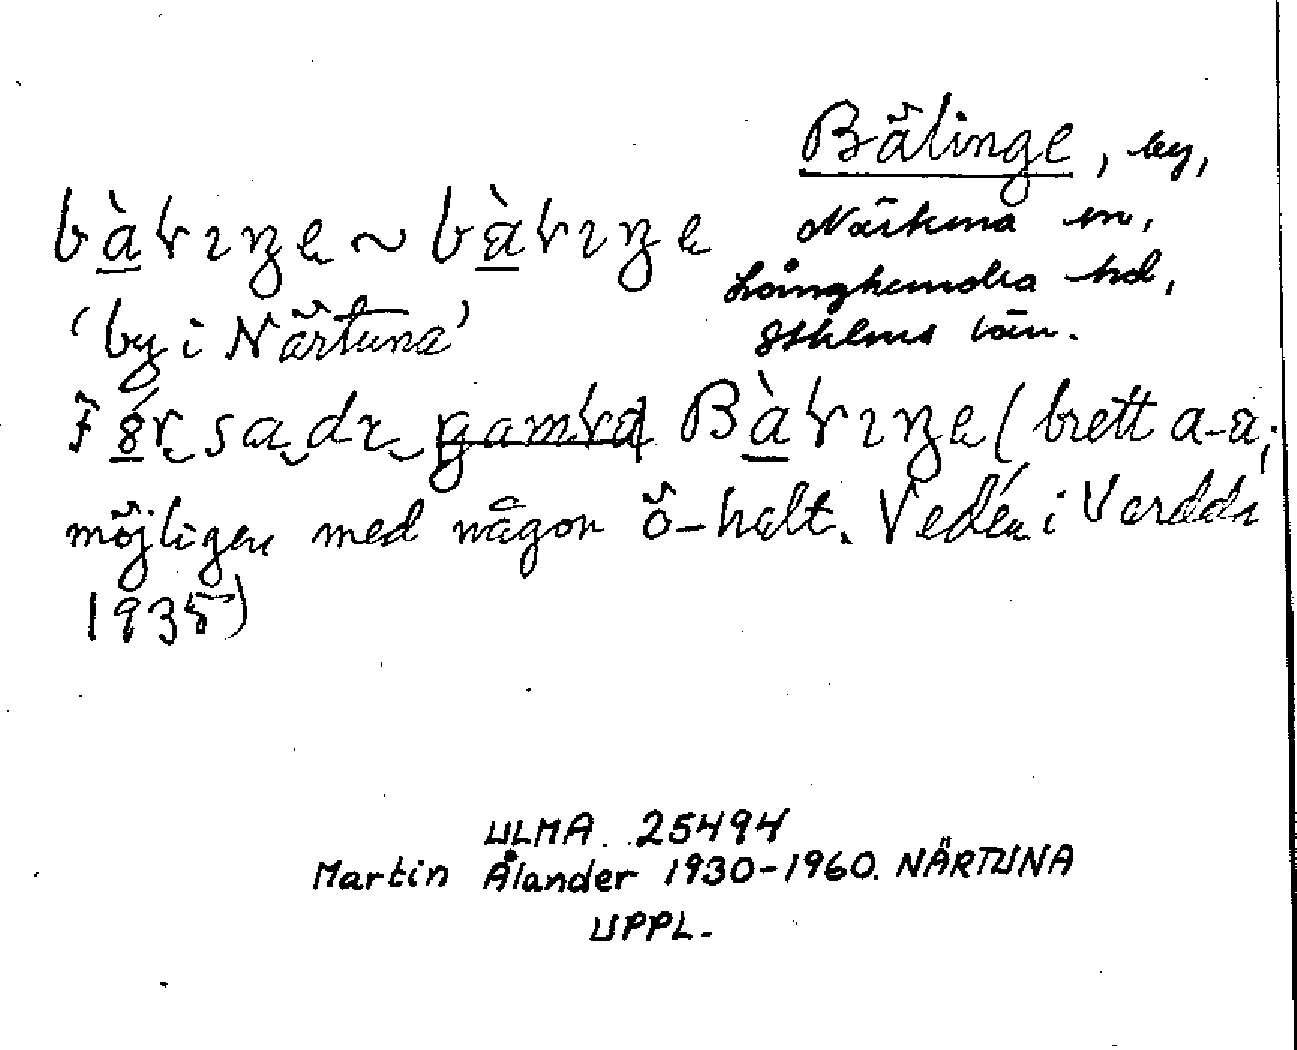 Bälinge, by,
Närtuna sn,
Långhundra hd,
Sthlms län.
bàlıŋe ~ bàlıŋe
'by i Närtuna'
sadı gamla Bàlıŋe (brett a-ä;
möjligen med någon ö-halt. Vedén i Vardda
1935)
ULMA 25494
Martin Ålander 1930-1960. NÄRTUNA
UPPL.